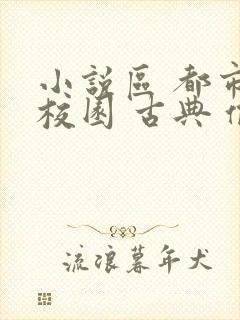 小說區 都市
校園 古典
流浪暮年犬